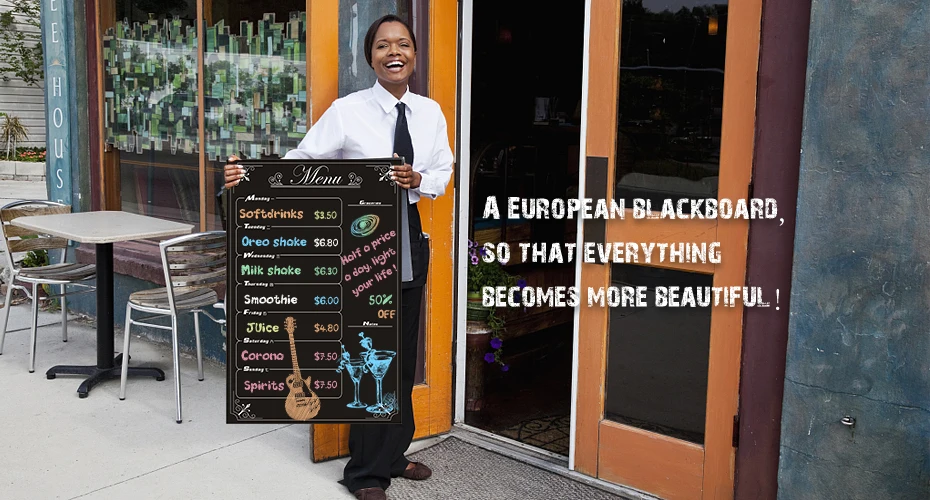 EE HOUSE
Menu
Monday
Softdrinks $3.50
Tuesday
Oreo shake $6.80
Wednesday
Milk shake $6.30
Thursday
Smoothie $6.00
Friday
Juice $4.80
Saturday
Corona $7.50
Sunday
Spirits $7.50
Groceries
Half a price
a day, light
your life!
50%
OFF
Notes
A EUROPEAN BLACKBOARD,
SO THAT EVERYTHING
BECOMES MORE BEAUTIFUL!